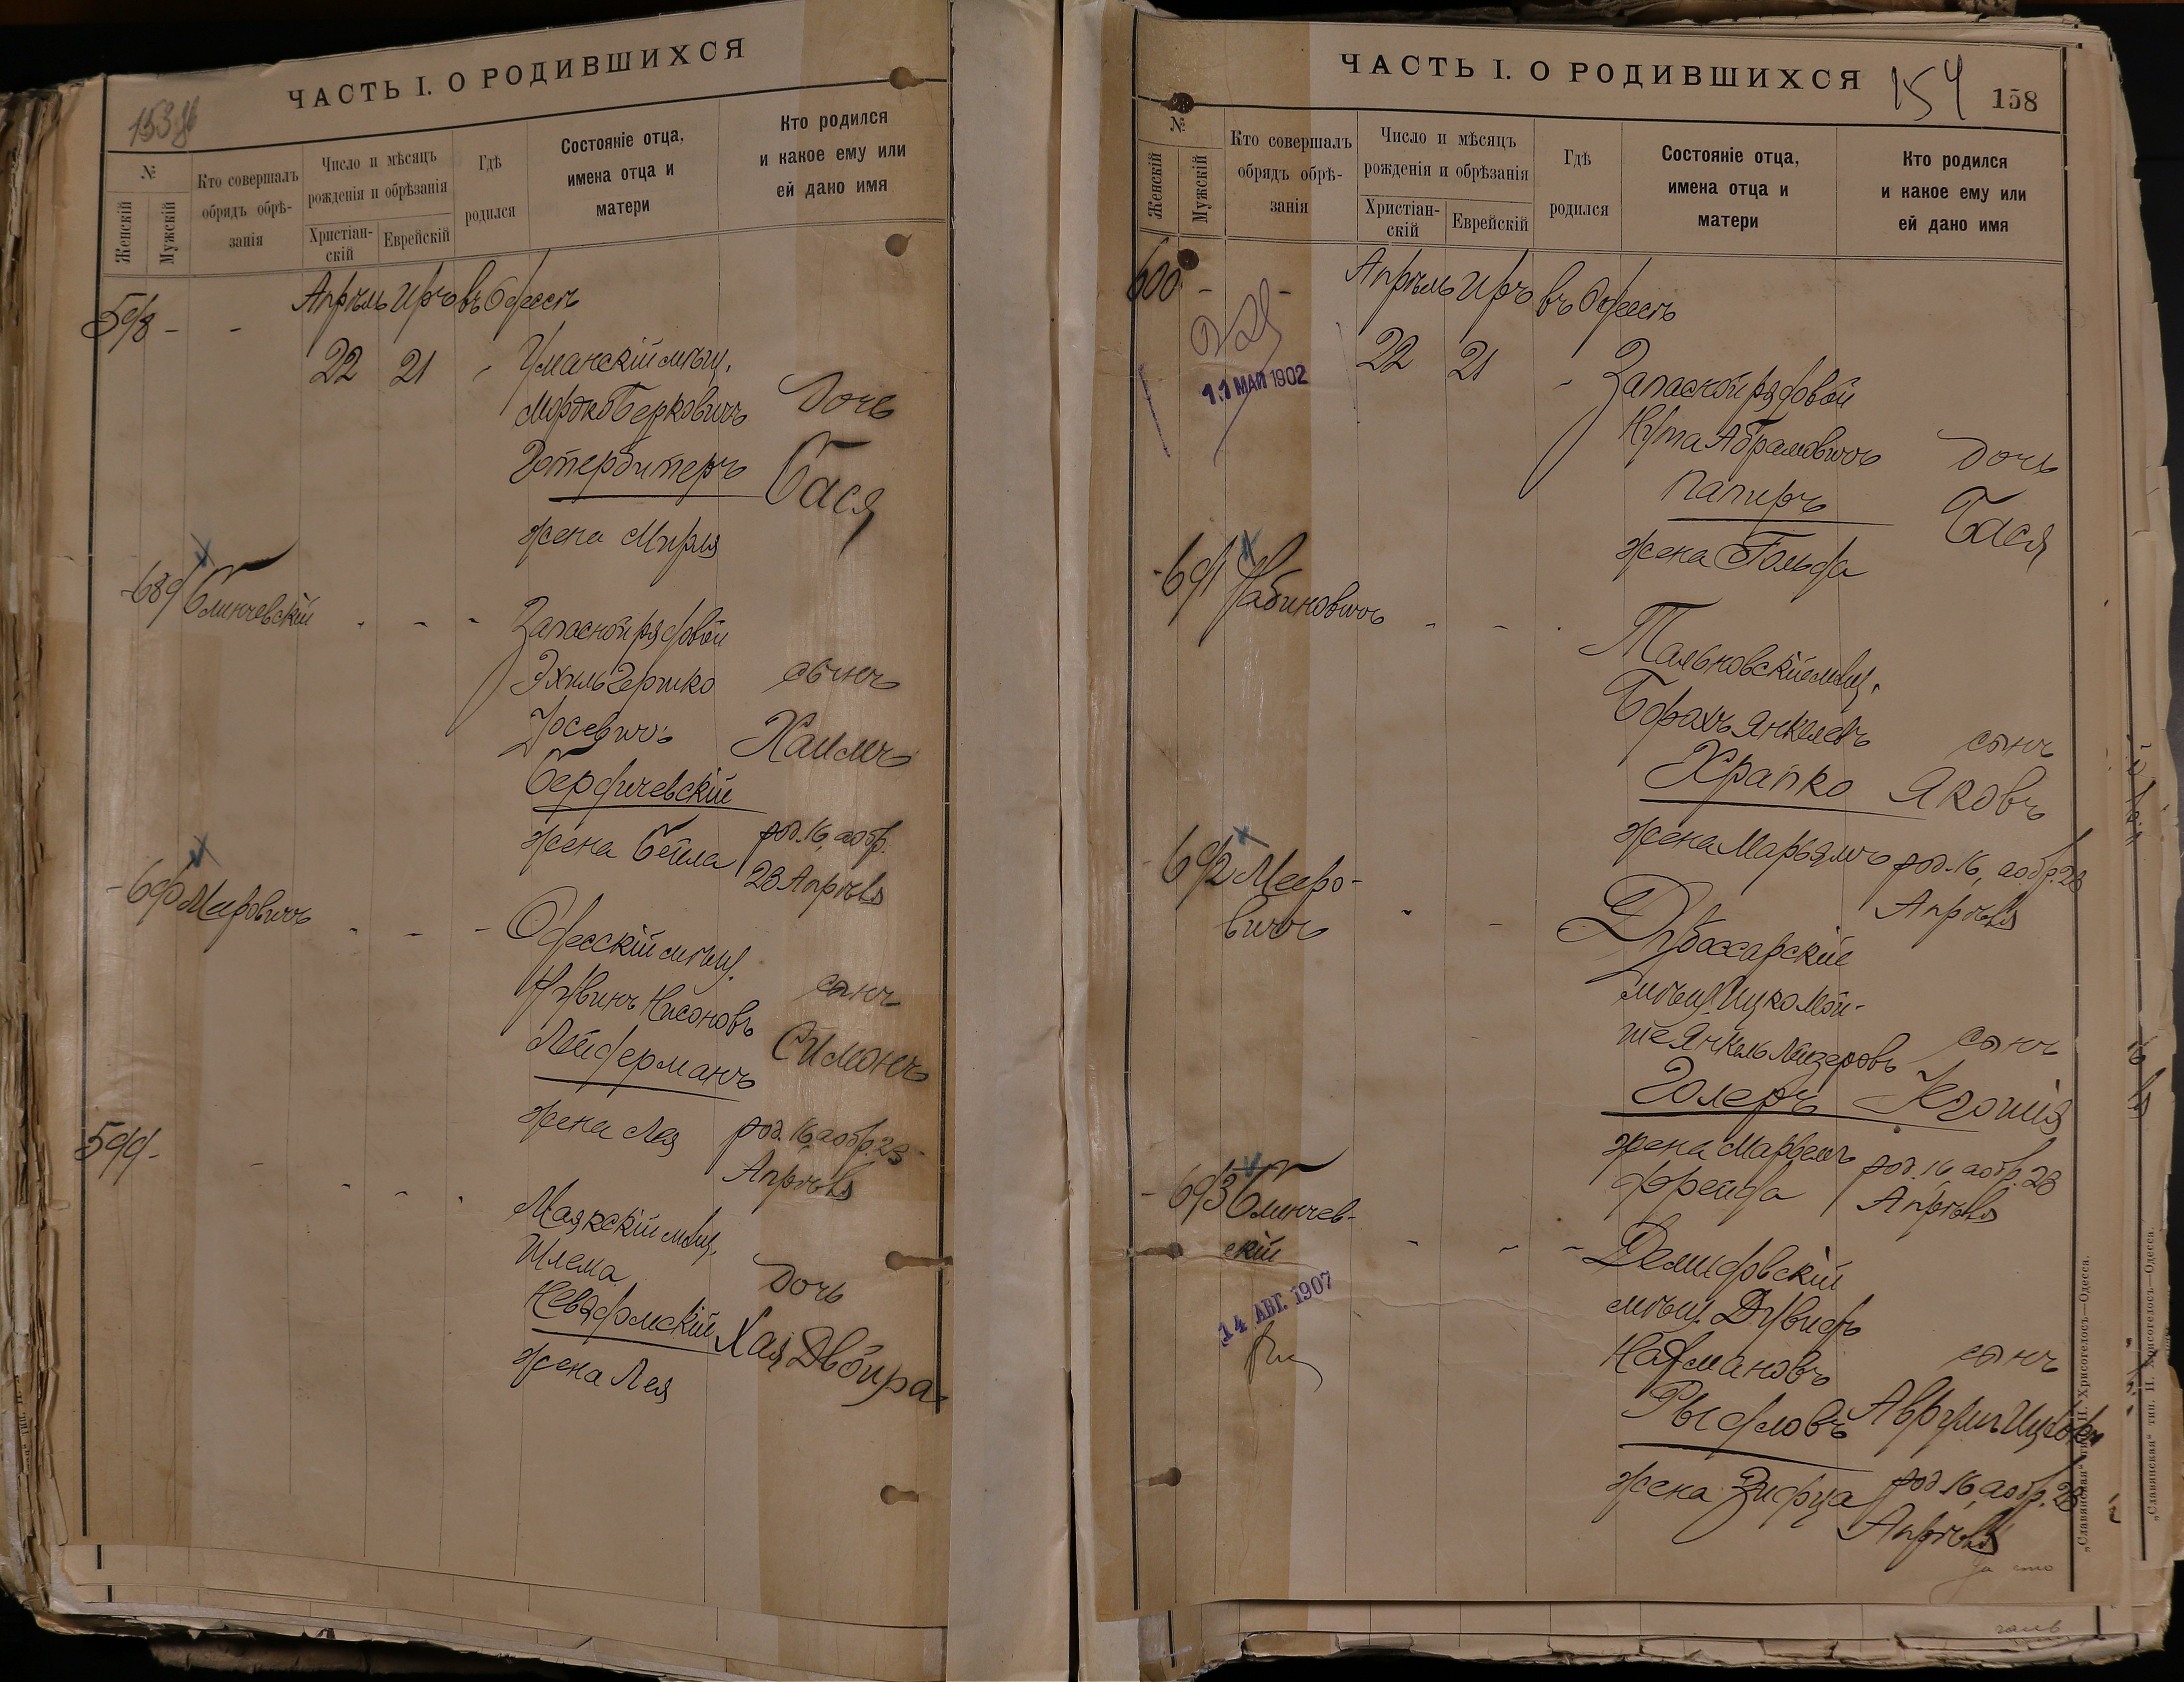 153
ЧАСТЬ I. О РОДИВШИХСЯ
№
Женскій
Мужскій
Кто совершалъ
обрядъ обрѣ-
занія
Число и мѣсяцъ
рожденія и обрѣзанія
Христіан-
скій
Еврейскій
Гдѣ
родился
Состояніе отца,
имена отца и
матери
Кто родился
и какое ему или
ей дано имя
Апрѣль Иръ въ Одессѣ
598 - -
22 21 Уманскій мѣщ.
Мордко Берковичъ
Дочь
Готербитеръ
Бася
жена Мирля
689 Блинчевскій
Запасной рядовой
Эхиль Гершко
сынъ
Іосевичъ
Хаимъ
Бердичевскій
жена Бейла
род. 16, а обр.
23 Апрѣля
690 Меировичъ
Одесскій мѣщ.
Рувинъ Нисоновъ
сынъ
Лейдерманъ
Симонъ
жена Лея
род. 16 а обр. 23
Апрѣля
599 -
Маякскій мѣщ.
Шлема
Дочь
Невядомскій
Хая Двойра
жена Лея
ЧАСТЬ I. О РОДИВШИХСЯ
154
158
№
Женскій
Мужскій
Кто совершалъ
обрядъ обрѣ-
занія
Число и мѣсяцъ
рожденія и обрѣзанія
Христіан-
скій
Еврейскій
Гдѣ
родился
Состояніе отца,
имена отца и
матери
Кто родился
и какое ему или
ей дано имя
600 - -
Апрѣль Иръ въ Одессѣ
11 МАЙ 1902
22 21 Запасной рядовой
Нута Абрамовичъ
Дочь
Папиръ
Бася
жена Гольда
691 Рабиновичъ
Тальновскій мѣщ.
Борахъ Янкелевъ
сынъ
Храпко
Яковъ
жена Марьямъ
род. 16, а обр. 23
Апрѣля
692 Мееро-
вичъ
Дубоссарскій
мѣщ. Ицко Мой-
ше Янкель Лейзеровъ
сынъ
Голеръ
Іегошія
жена Марьемъ
Фрейда
род. 16 а обр. 23
Апрѣля
693 Блинчев-
скій
14 АВГ. 1907
Демидовскій
мѣщ. Дувидъ
Нахмановъ
сынъ
Рыдловъ
Аврумъ Ицхокъ
жена Зисца
род. 16, а обр. 23
Апрѣля
„Славянская“ тип. Н. Хрисогелосъ—Одесса.
„Славянская“ тип. Н. Хрисогелосъ—Одесса.